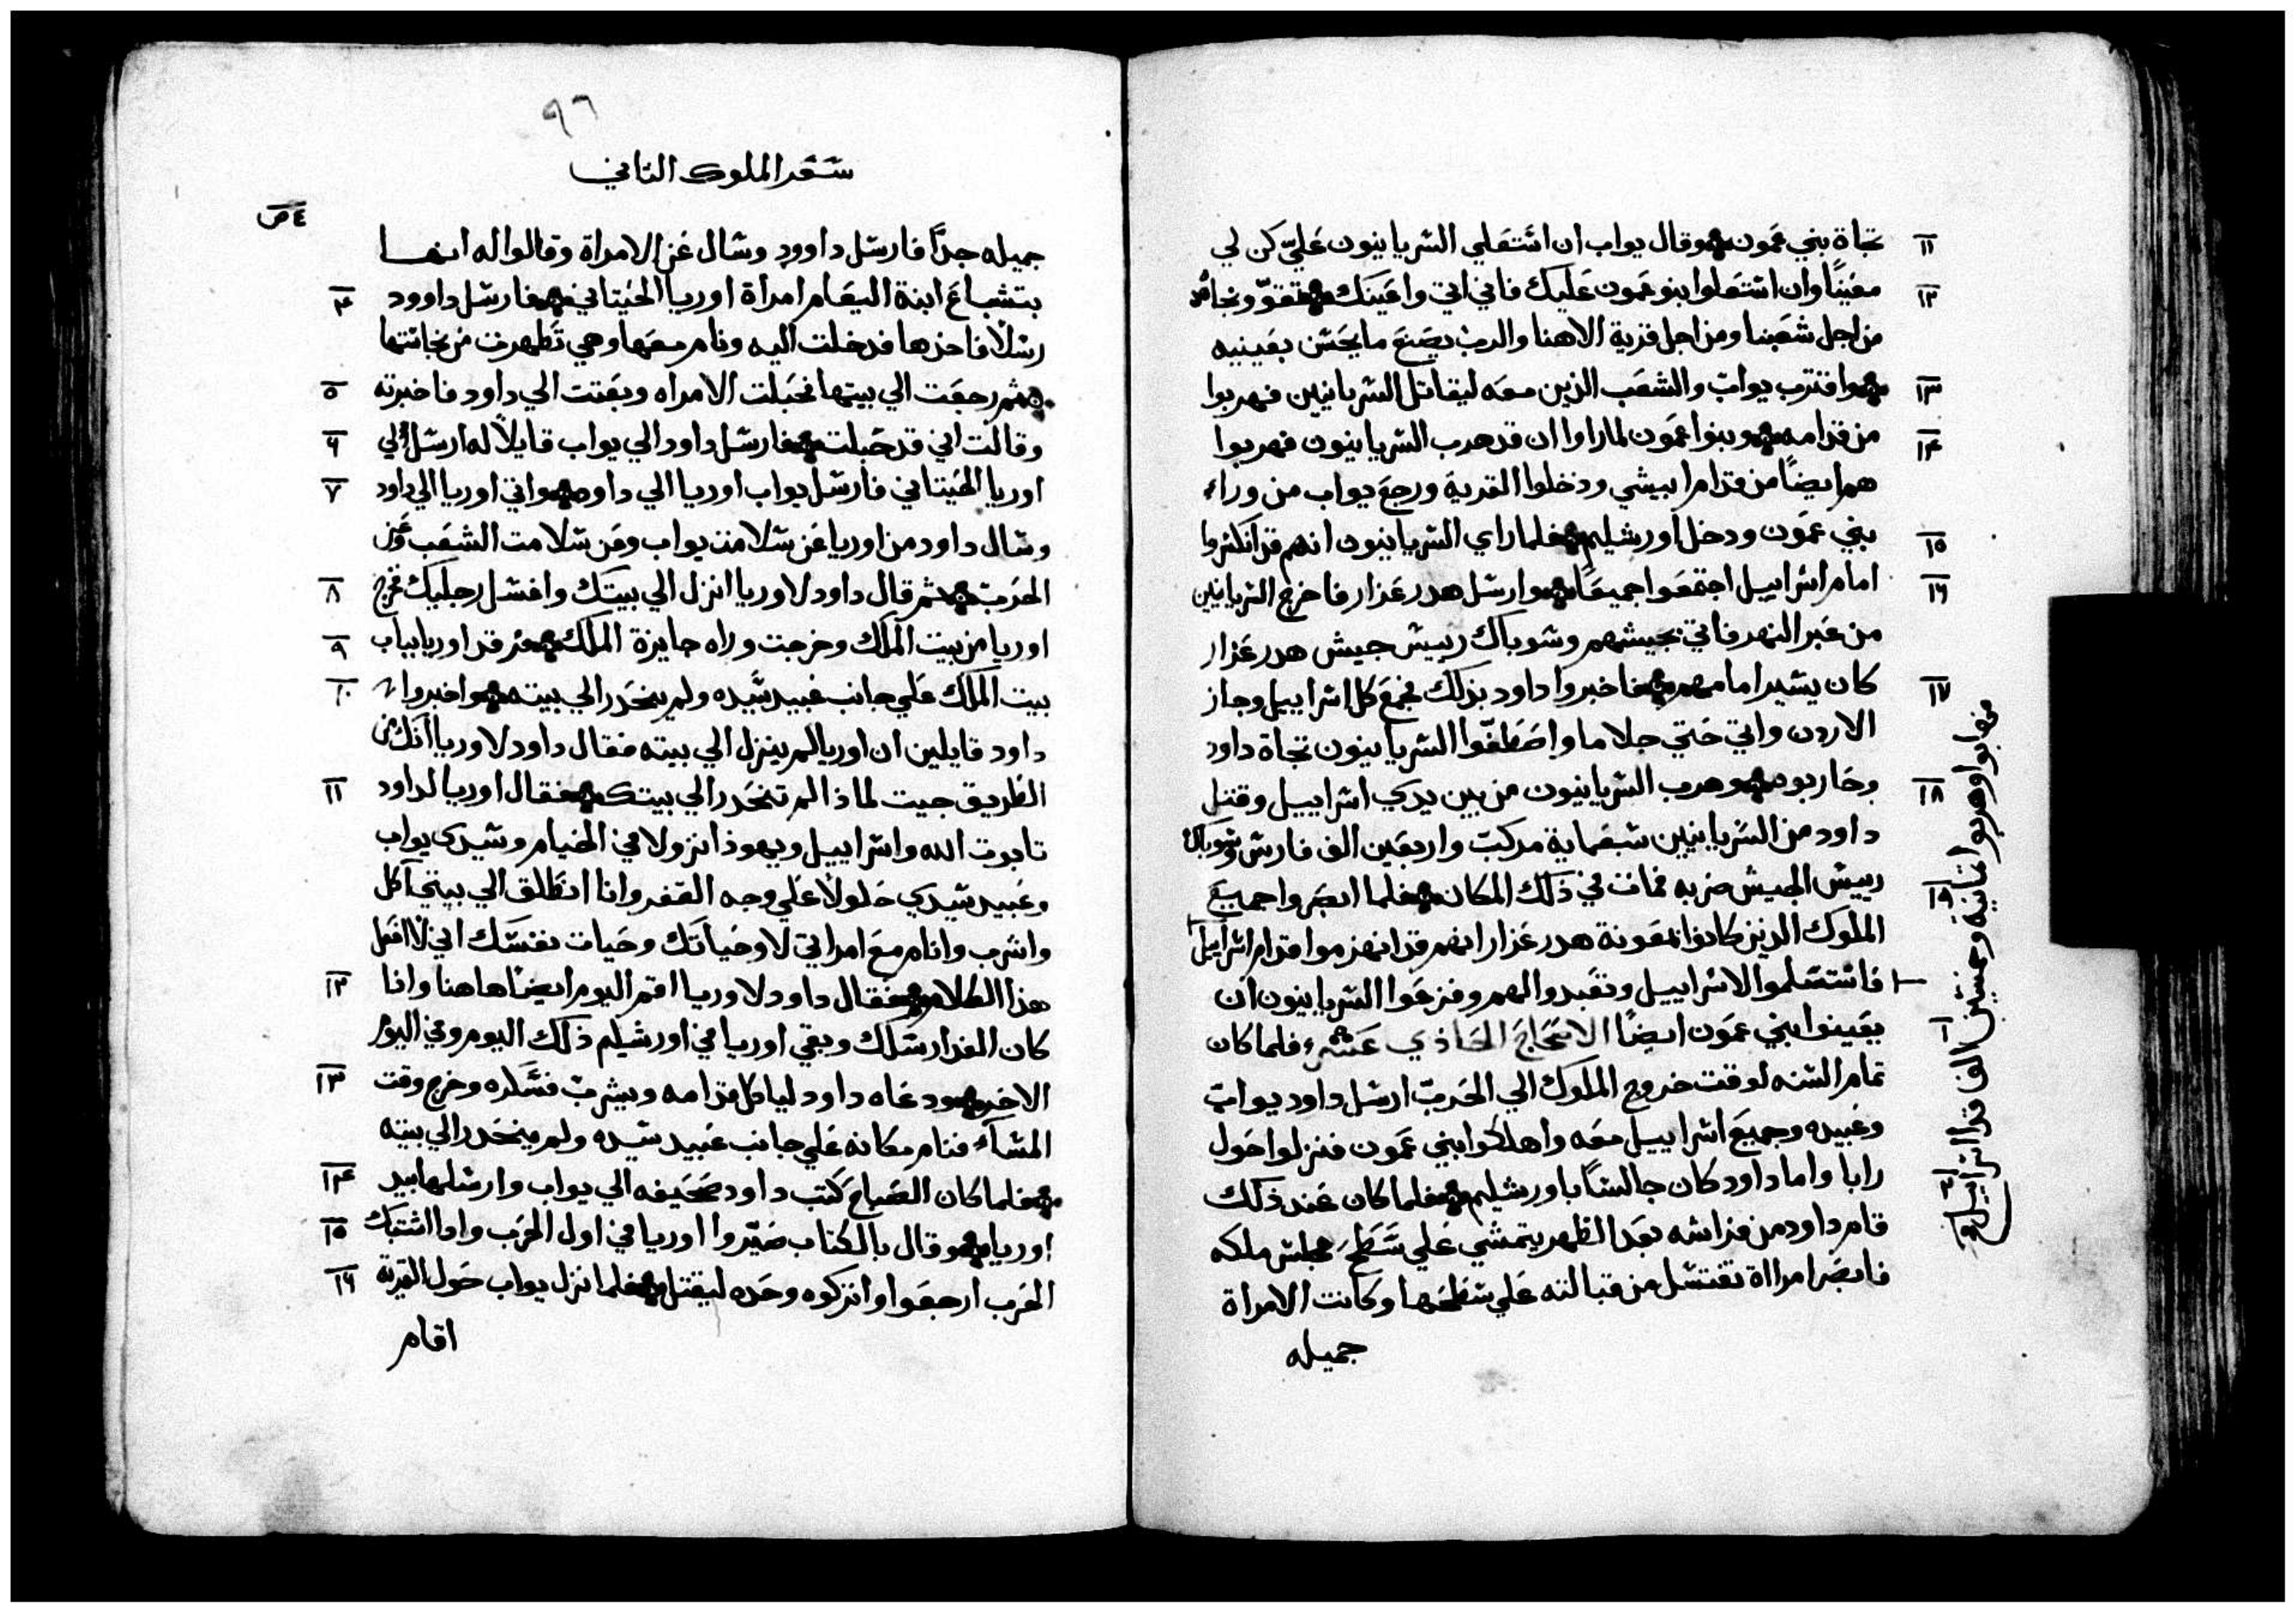 ١١ تجاة بني عمون وقال يواب ان استعلي السريانيون عليّ كن لي
١٢ معينًا وان استعلوا بنو عمون عليك فاني اتي واعينك تقوّ ونجاهد
من اجل شعبنا ومن اجل قرية الاهنا والرب يصنع ما يحسن بعينيه
١٣ واقترب يواب والشعب الذين معه ليقاتل السريانيين فهربوا
١٤ من قدامه وبنوا عمون لما راوا ان قد هرب السريانيون فهربوا
هم ايضًا من قدام ابيشي ودخلوا القرية ورجع يواب من وراء
١٥ بني عمون ودخل اورشليم فلما راي السريانيون انهم قد انكسروا
١٦ امام اسراييل اجتمعوا جميعًا وارسل هدرعزار فاخرج السريانيين
من عبر النهر فاتي بجيشهم وشوباك رييس جيش هدرعزار
١٧ كان يسير امامهم فاخبروا داود بذلك فجمع كل اسراييل وجاز
الاردن واتي حتي حلاما واصطفّوا السريانيون تجاة داود
١٨ وحاربوه وهرب السريانيون من بين يدي اسراييل وقتل
داود من السريانيين سبعماية مركب واربعين الف فارس وشوباك
١٩ رييس الجيش ضربه فمات في ذلك المكان فلما ابصروا جميع
الملوك الذين كانوا بمعونة هدرعزار انهم قد انهزموا قدام اسراييل
فاستسلموا الاسراييل وتعبدوا لهم وفزعوا السريانيون ان
يعينوا بني عمون ايضًا الاصحاح الحاذي عشر ١ فلما كان
تمام السنه لوقت خروج الملوك الي الحرب ارسل داود يواب
وعبيده وجميع اسراييل معه واهلكوا بني عمون فنزلوا حول
٢ رابا واما داود كان جالسًا باورشليم فلما كان عند ذلك
قام داود من فراشه بعد الظهر يتمشي علي سطح مجلس ملكه
فابصر امراة تغتسل من قبالته علي سطحها وكانت الامراة
جميله
فخابوا وهربوا ثمانية وخمسين الف قدام اسراييل
٩٦
سفر الملوك الثاني
جميله جدًا فارسل داوود وسال عن الامراة وقالوا له انها
٤ بتشباع ابنة اليعام امراة اوريا الحيتاني فارسل داوود
رسلًا فاخذها فدخلت اليه ونام معها وهي تطهرت من نجاستها
٥ ثم رجعت الي بيتها فحبلت الامراه وبعتت الي داود فاخبرته
٦ وقالت اني قد حبلت فارسل داود الي يواب قايلًا له ارسل الي
٧ اوريا الحيتاني فارسل يواب اوريا الي داود واتي اوريا الي داود
وسال داود من اوريا عن سلامت يواب وعن سلامت الشعب وعن
٨ الحرب ثم قال داود لاوريا انزل الي بيتك واغسل رجليك فخرج
٩ اوريا من بيت الملك وخرجت وراه جايزة الملك فرقد اوريا بباب
١٠ بيت الملك علي جانب عبيد سيده ولم ينحدر الي بيته واخبروا
داود قايلين ان اوريا لم ينزل الي بيته فقال داود لاوريا انك من
١١ الطريق جيت لماذا لم تنحدر الي بيتك فقال اوريا لداود
تابوت الله واسراييل ويهوذا نزولا في الخيام وسيدي يواب
وعبيد سيدي حلولًا علي وجه القفر وانا انطلق الي بيتي اكل
واشرب وانام مع امراتي لا وحياتك وحيات نفسك اني لا افعل
١٢ هذا الكلام فقال داود لاوريا اقم اليوم ايضًا هاهنا وانا
كان الغد ارسلك وبقي اوريا في اورشيلم ذلك اليوم وفي اليوم
١٣ الاخر ودعاه داود لياكل قدامه ويشرب فسكره وخرج وقت
المسآء فنام مكانه علي جانب عبيد سيده ولم ينحدر الي بيته
١٤ فلما كان الصباح كتب داود صحيفه الي يواب وارسلها بيد
١٥ اوريا وقال بالكتاب صيّروا اوريا في اول الحرب واذا اشتبك
١٦ الحرب ارجعوا واتركوه وحده ليقتل فلما نزل يواب حول القرية
اقام